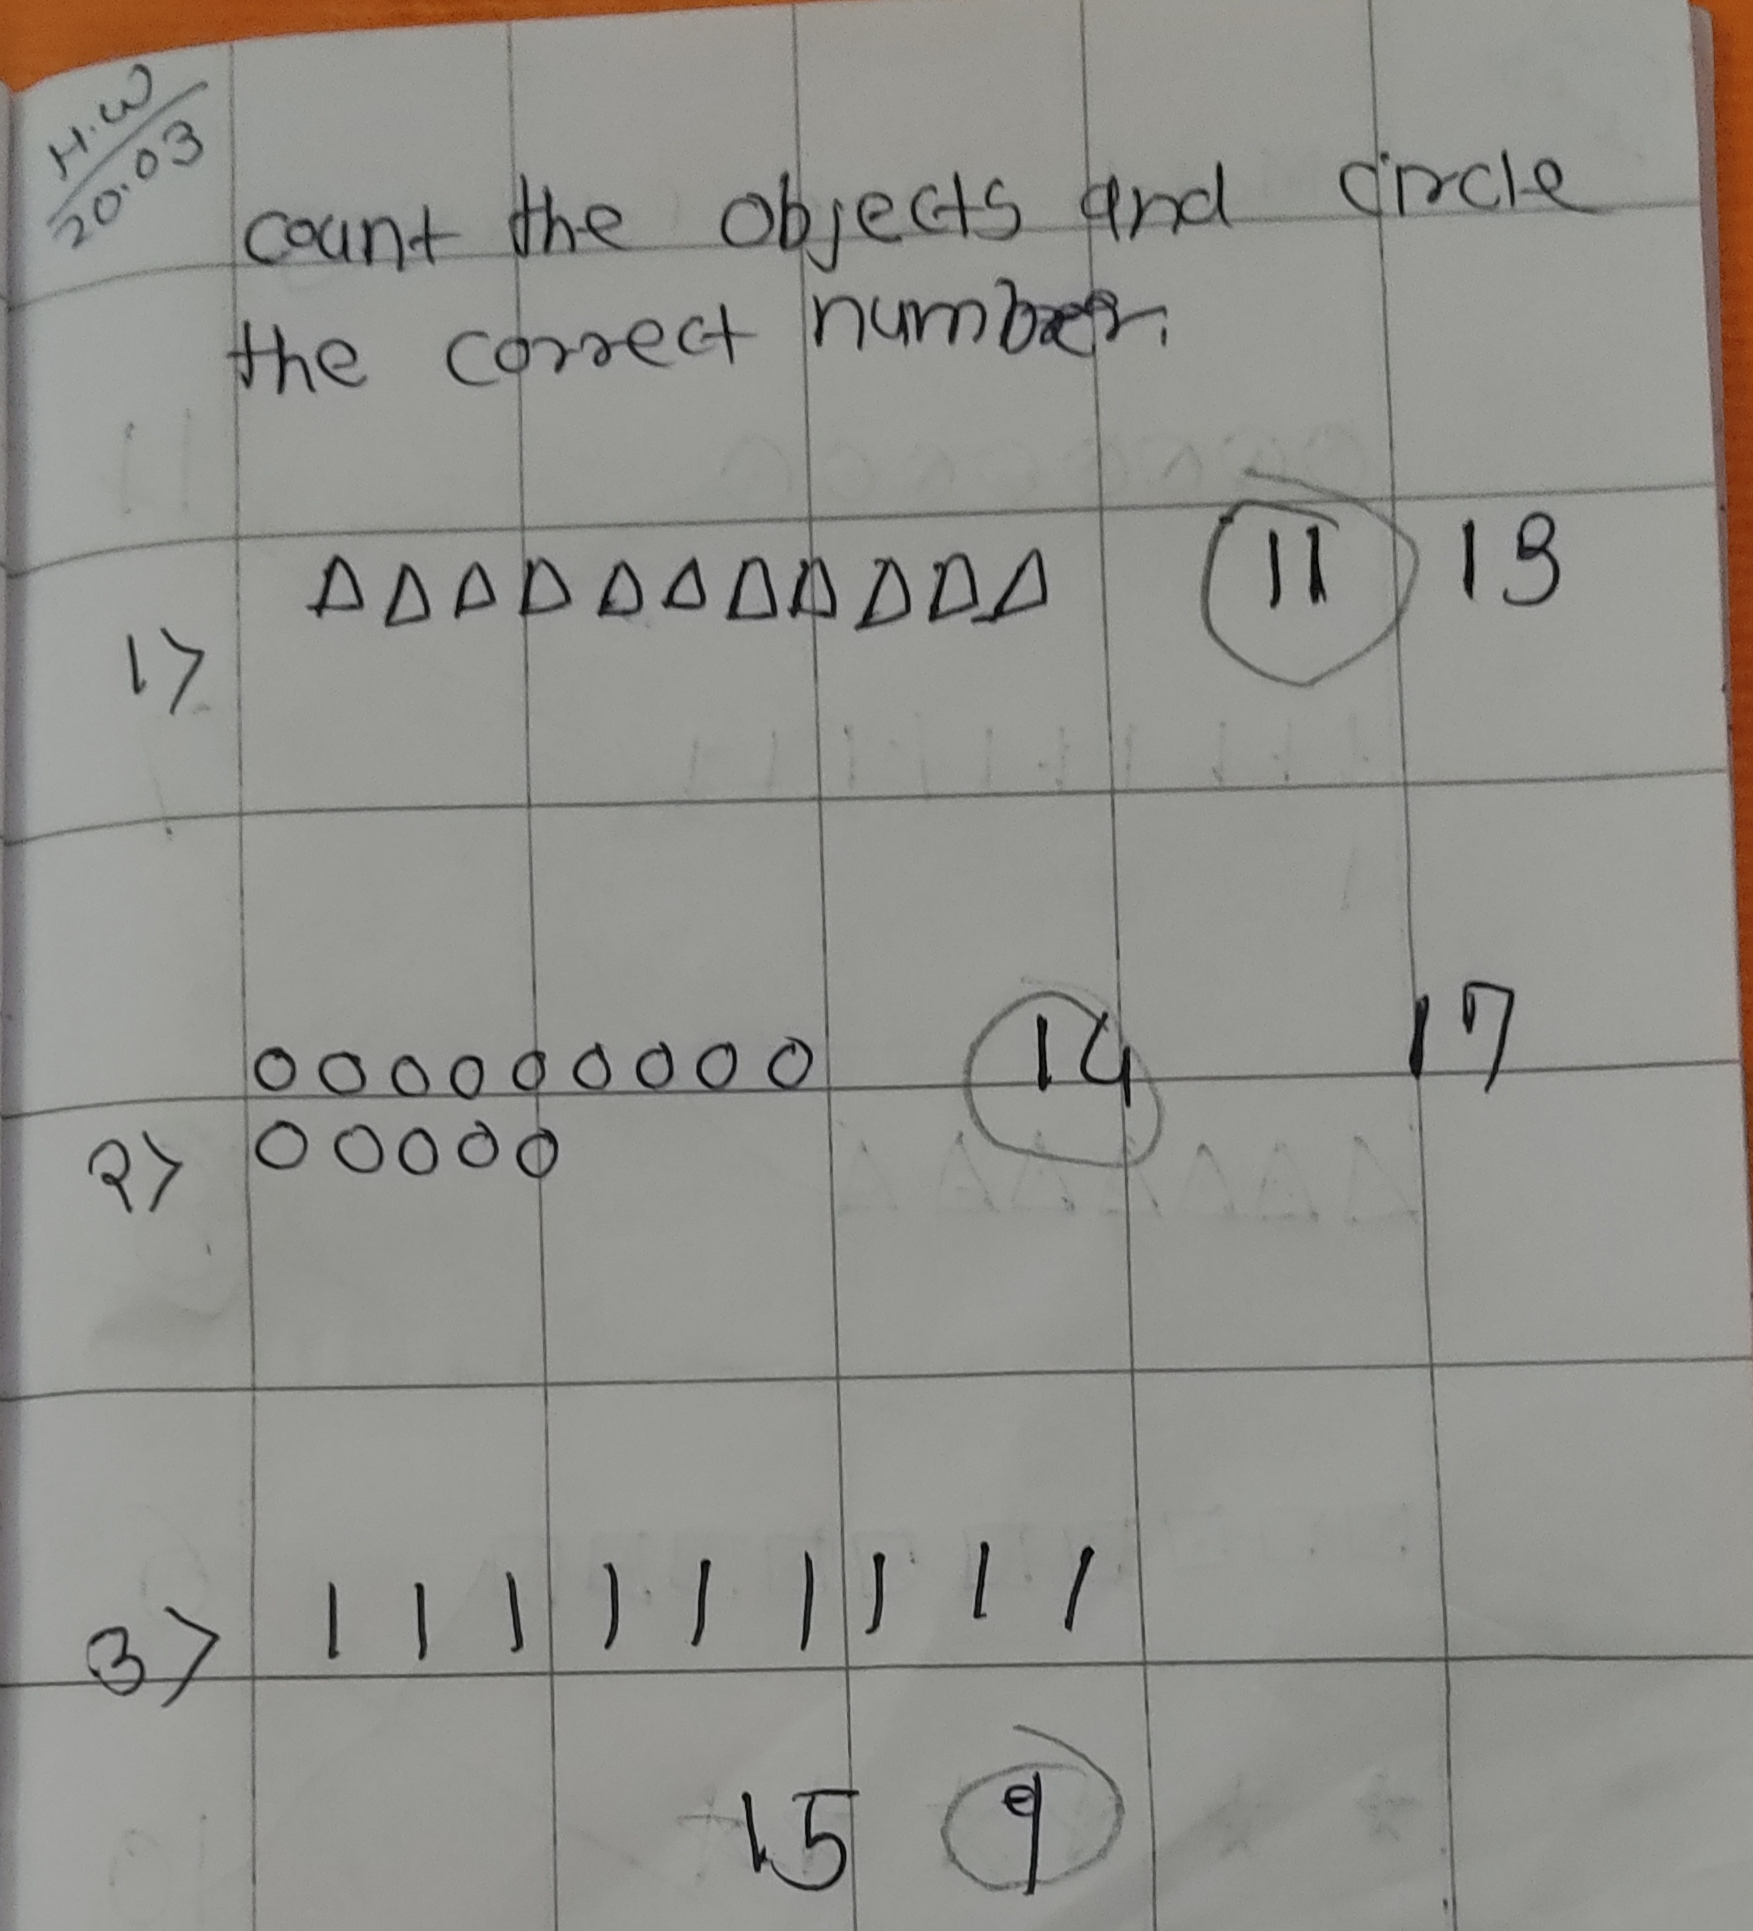 H.W
20.03
count the objects and circle
the correct number.
1> △△△△△△△△△△△ 11 13
OOOOOOOOO 14 17
2> OOOOO
3> | | | | | | | | |
15 9